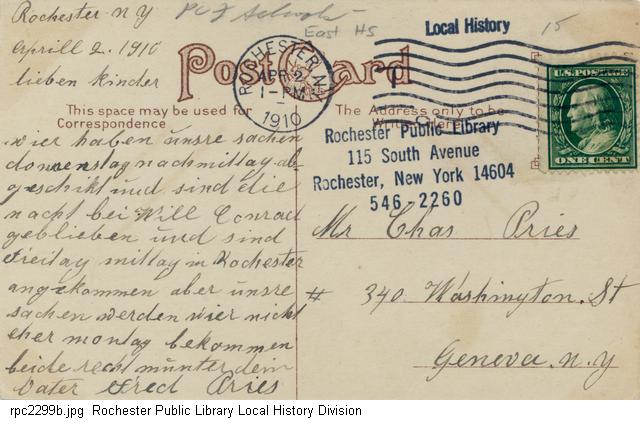 Rochester N Y
Aprill 2. 1910
lieben kinder
PCF Schools
East HS
Local History
15
Post Card
ROCHESTER, N.Y.
APR 2
1-PM
1910
U.S. POSTAGE
ONE CENT
This space may be used for
Correspondence
The Address only to be
Written Here
Rochester Public Library
115 South Avenue
Rochester, New York 14604
546-2260
wier haben unsre sachen
donenstag nachmittag ab
geschikt und sind die
nacht bei Will Conrad
geblieben und sind
freitag mittag in Rochester
angekommen aber unsre
sachen werden wier nicht
eher montag bekommen
beide recht munter dein
Vater Fred Aries
Mr Chas Aries
# 340 Washington St
Geneva. N. Y
rpc2299b.jpg Rochester Public Library Local History Division